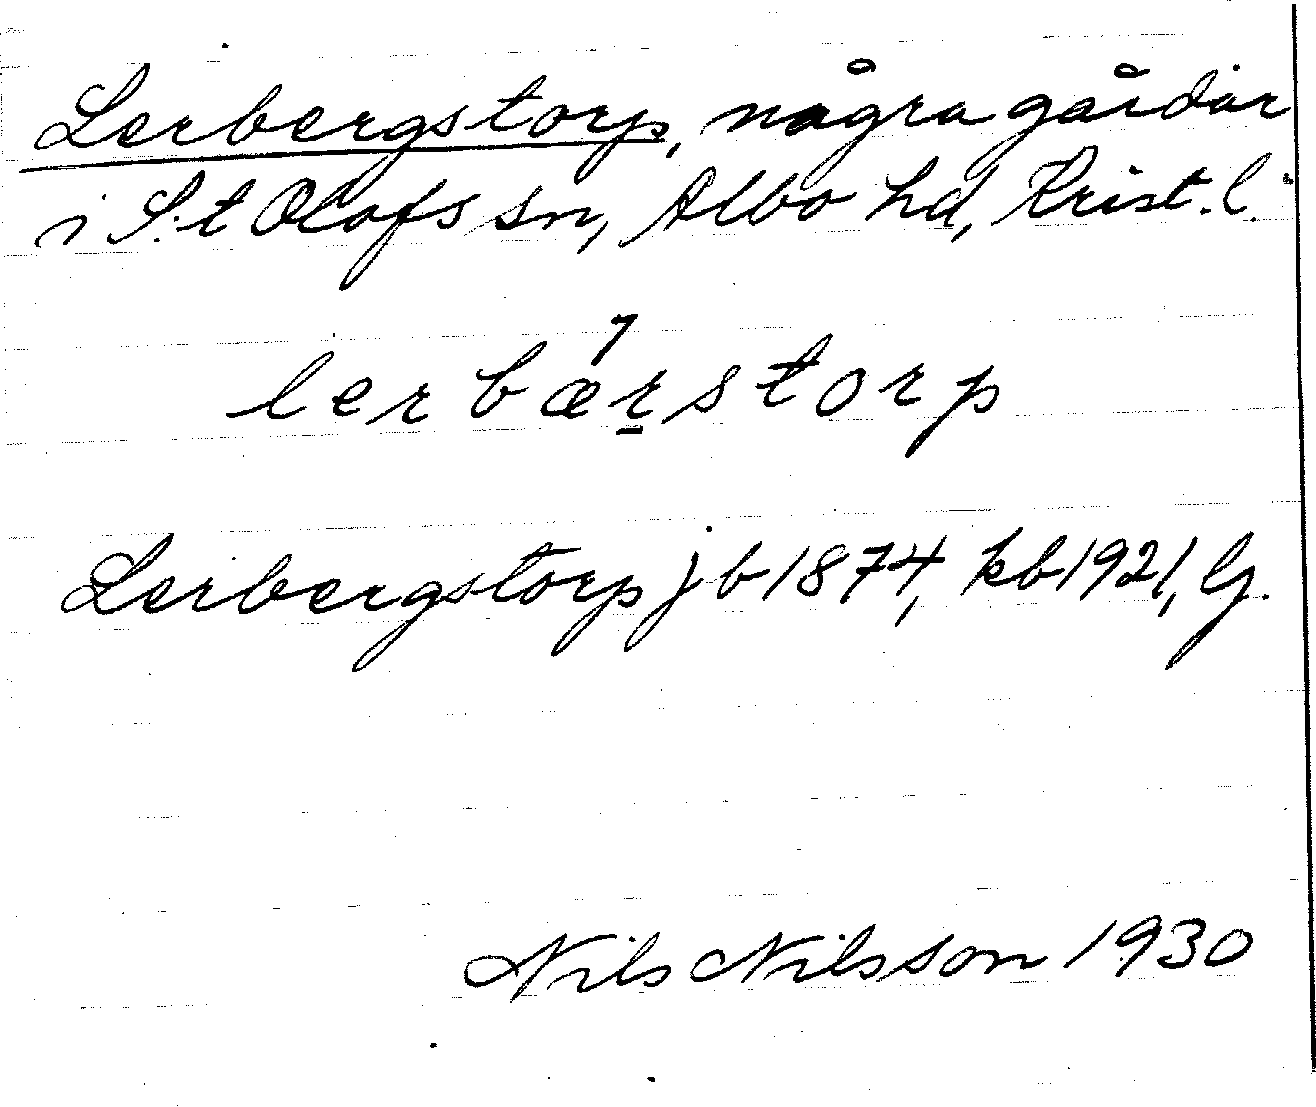 Lerbergstorp, några gårdar
i S:t Olofs sn, Albo hd, Krist. l.
lerbærstorp
Lerbergstorp jb 1874, kb 1921, G.
Nils Nilsson 1930